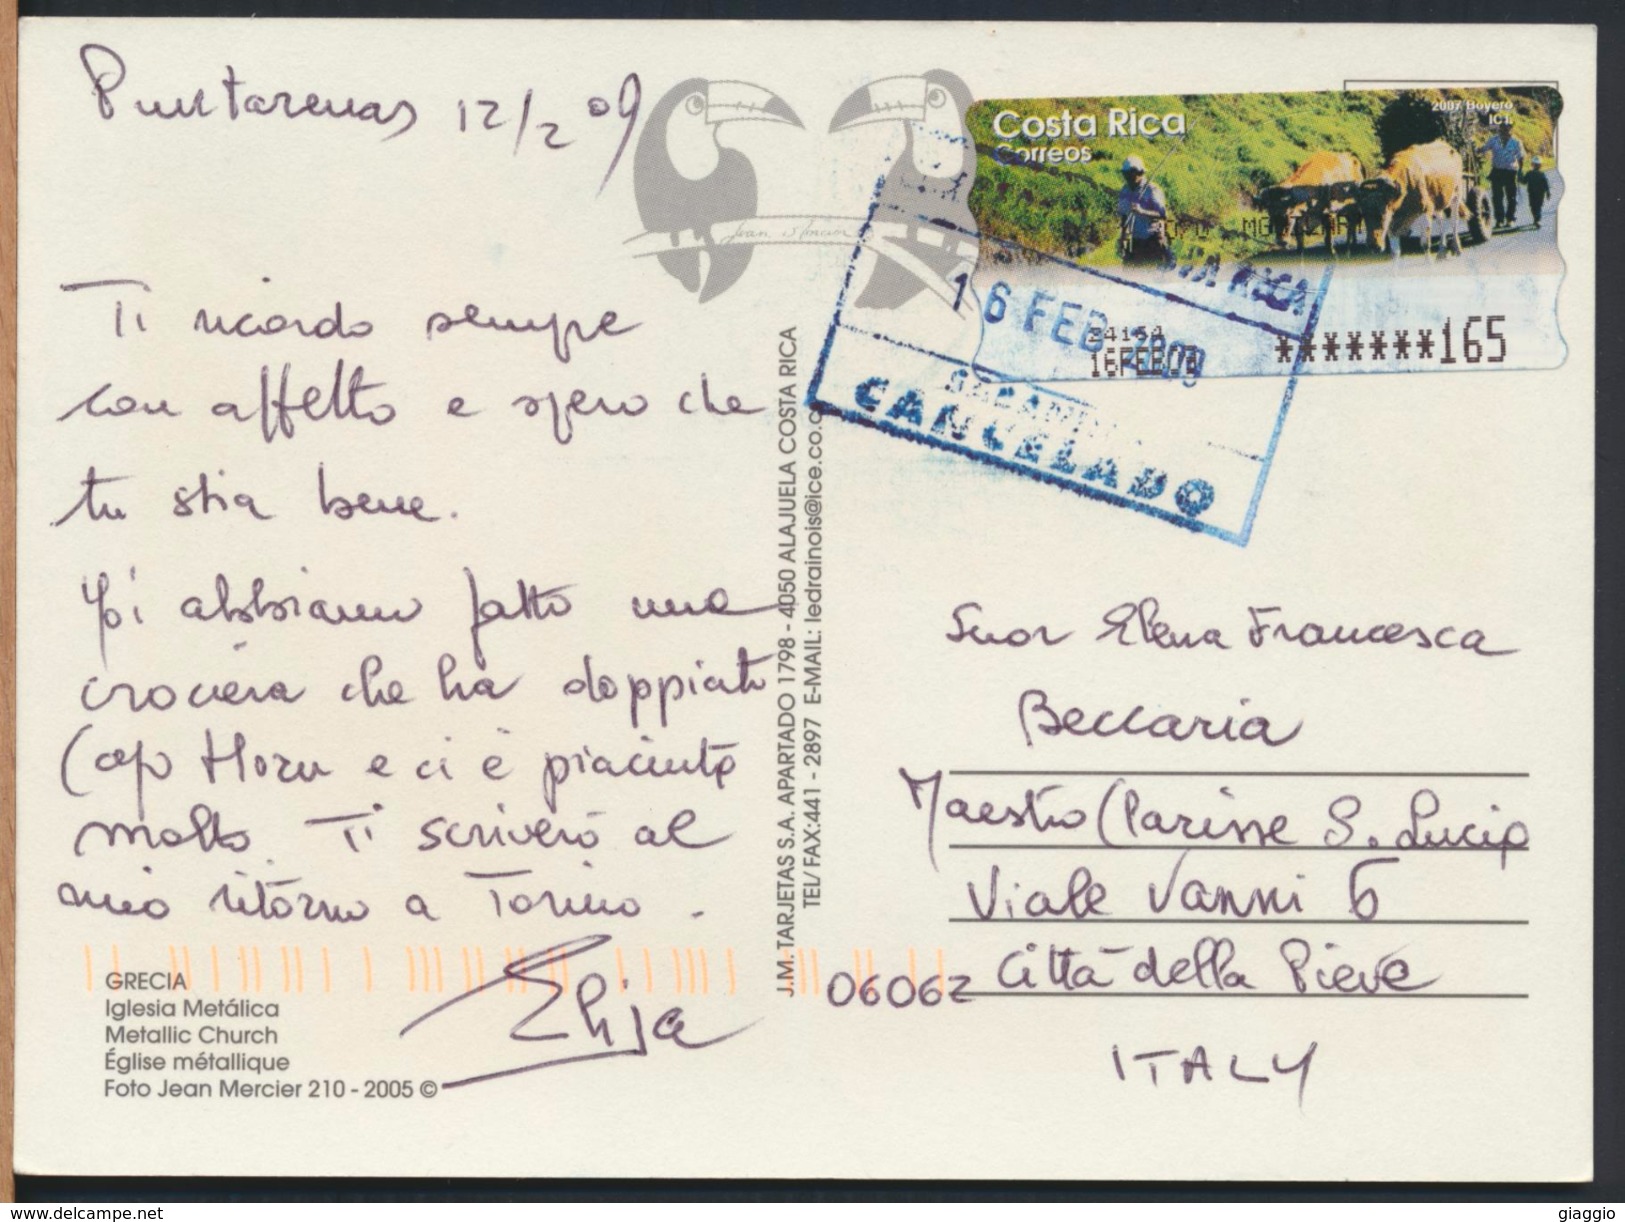 Puntarenas 12/2 09
Ti ricordo sempre
con affetto e spero che
tu stia bene.
abbiamo fatto una
crociera che ha doppiato
Cap Horn e ci è piaciuta
molto. Ti scriverò al
mio ritorno a Torino.
Elisa
GRECIA
Iglesia Metálica
Metallic Church
Église métallique
Foto Jean Mercier 210 - 2005 ©
J.M. TARJETAS S.A. APARTADO 1798 - 4050 ALAJUELA COSTA RICA
TEL/ FAX:441 - 2897 E-MAIL: ledrainois@ice.co.c
Costa Rica
Correos
2007 Boyero
24164
16FEB09
*******165
16 FEB 2009
CANCELADO
Suor Elena Francesca
Beccaria
Maestro Clarisse S. Lucia
Viale Vanni 6
06062 Città della Pieve
ITALY
www.delcampe.net
giaggio